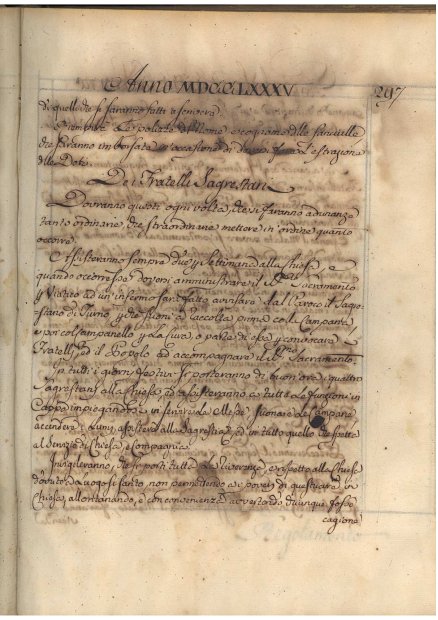 Anno MDCCLXXXV
297
di quelli che si saranno fatti
le polizze nome e cognome delle fanciulle
che saranno imborsate in occasione di l'estrazione
delle Doti.
Dei Fratelli Sagrestani
Dovranno questi ogni volta, che si faranno adunanze
tanto ordinarie, che straordinarie mettere in ordine quanto
occorre.
Assisteranno sempre due Settimana alla Chiesa, e
quando occorresse doversi amministrare il SS. Sacramento
Viatico ad un infermo sarà fatto avvisare dal Paroco il Sagre-
stano di Turno, che suoni a raccolta prima colla Campana
e poi col campanello e convocare
Fratelli, ed il Popolo ad accompagnare il SS. Sacramento
In tutti i giorni festivi si porteranno di buon'ora i quattro
Sagrestani alla Chiesa ed assisteranno a tutte le funzioni in
Cappa impiegandosi in servire le Messe, suonare le Campane
accendere i Lumi, assistere alla Sagrestia, ed in tutto quello che spetta
al servizio di Chiesa, e Compagnia.
Invigileranno, che si porti tutta la riverenza, e rispetto alla Chiesa
dovuto a luogo sì santo, non permettendo ai poveri di questuare in
Chiesa, allontanando, e con convenienza avvertendo chiunque fosse
cagione
Regolamento